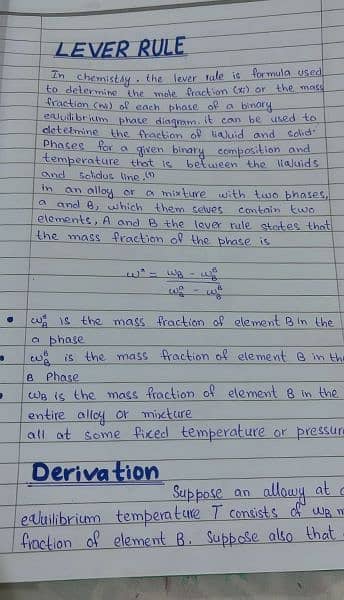 LEVER RULE
In chemistsy, the lever rule is formula used
to determine the mole fraction (xi) or the mass
fraction (wi) of each phase of a binary
equilibrium phase diagram. it can be used to
detetmine the fraction of liquid and solid
Phases for a given binary composition and
temperature that is between the liquids
and solidus line.(1)
in an alloy or a mixture with two phases,
a and B, which them selves contain two
elements, A and B the lever rule states that
the mass fraction of the phase is
wᵃ = wB - wBᴮ
wBᵃ - wBᴮ
• wBᵃ is the mass fraction of element B in the
a phase
• wBᴮ is the mass fraction of element B in the
B Phase
• wB is the mass fraction of element B in the
entire alloy or mixture
all at some fixed temperature or pressure
Derivation
Suppose an allowy at
equilibrium temperature T consists of wB
fraction of element B. Suppose also that